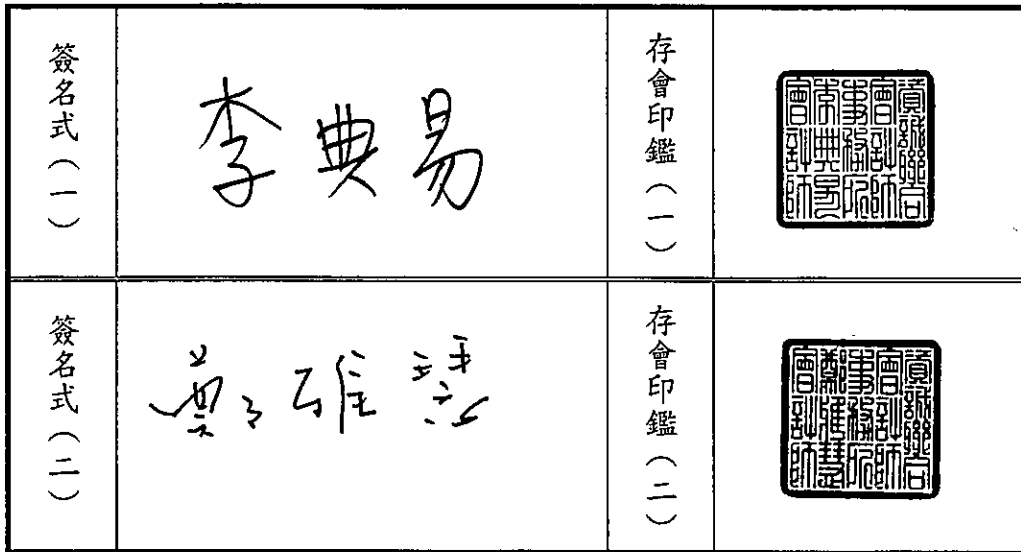 簽名式(一)
李典易
存會印鑑(一)
資誠聯合
會計師
事務所
李典易
會計師
簽名式(二)
鄭雅慧
存會印鑑(二)
資誠聯合
會計師
事務所
鄭雅慧
會計師